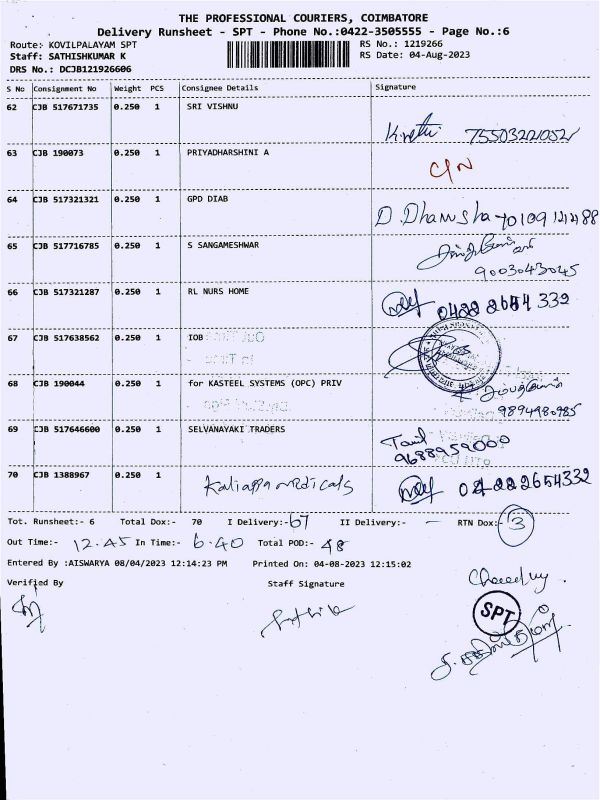 THE PROFESSIONAL COURIERS, COIMBATORE
Delivery Runsheet - SPT - Phone No.:0422-3505555 - Page No.:6
Route: KOVILPALAYAM SPT RS No.: 1219266
Staff: SATHISHKUMAR K RS Date: 04-Aug-2023
DRS No.: DCJB121926606
S No Consignment No Weight PCS Consignee Details Signature
62 CJB 517671735 0.250 1 SRI VISHNU
63 CJB 190073 0.250 1 PRIYADHARSHINI A C/N
64 CJB 517321321 0.250 1 GPD DIAB D. Dhamsha
65 CJB 517716785 0.250 1 S SANGAMESHWAR
9003043045
66 CJB 517321287 0.250 1 RL NURS HOME 0422 2654 332
67 CJB 517638562 0.250 1 IOB
68 CJB 190044 0.250 1 for KASTEEL SYSTEMS (OPC) PRIV
9894980985
69 CJB 517646600 0.250 1 SELVANAYAKI TRADERS
9688959000
70 CJB 1388967 0.250 1 Kaliappa medicals 04222654332
Tot. Runsheet:- 6 Total Dox:- 70 I Delivery:- 67 II Delivery:- — RTN Dox:- 3
Out Time:- 12.45 In Time:- 6.40 Total POD:- 48
Entered By :AISWARYA 08/04/2023 12:14:23 PM Printed On: 04-08-2023 12:15:02
Verified By Staff Signature
SPT